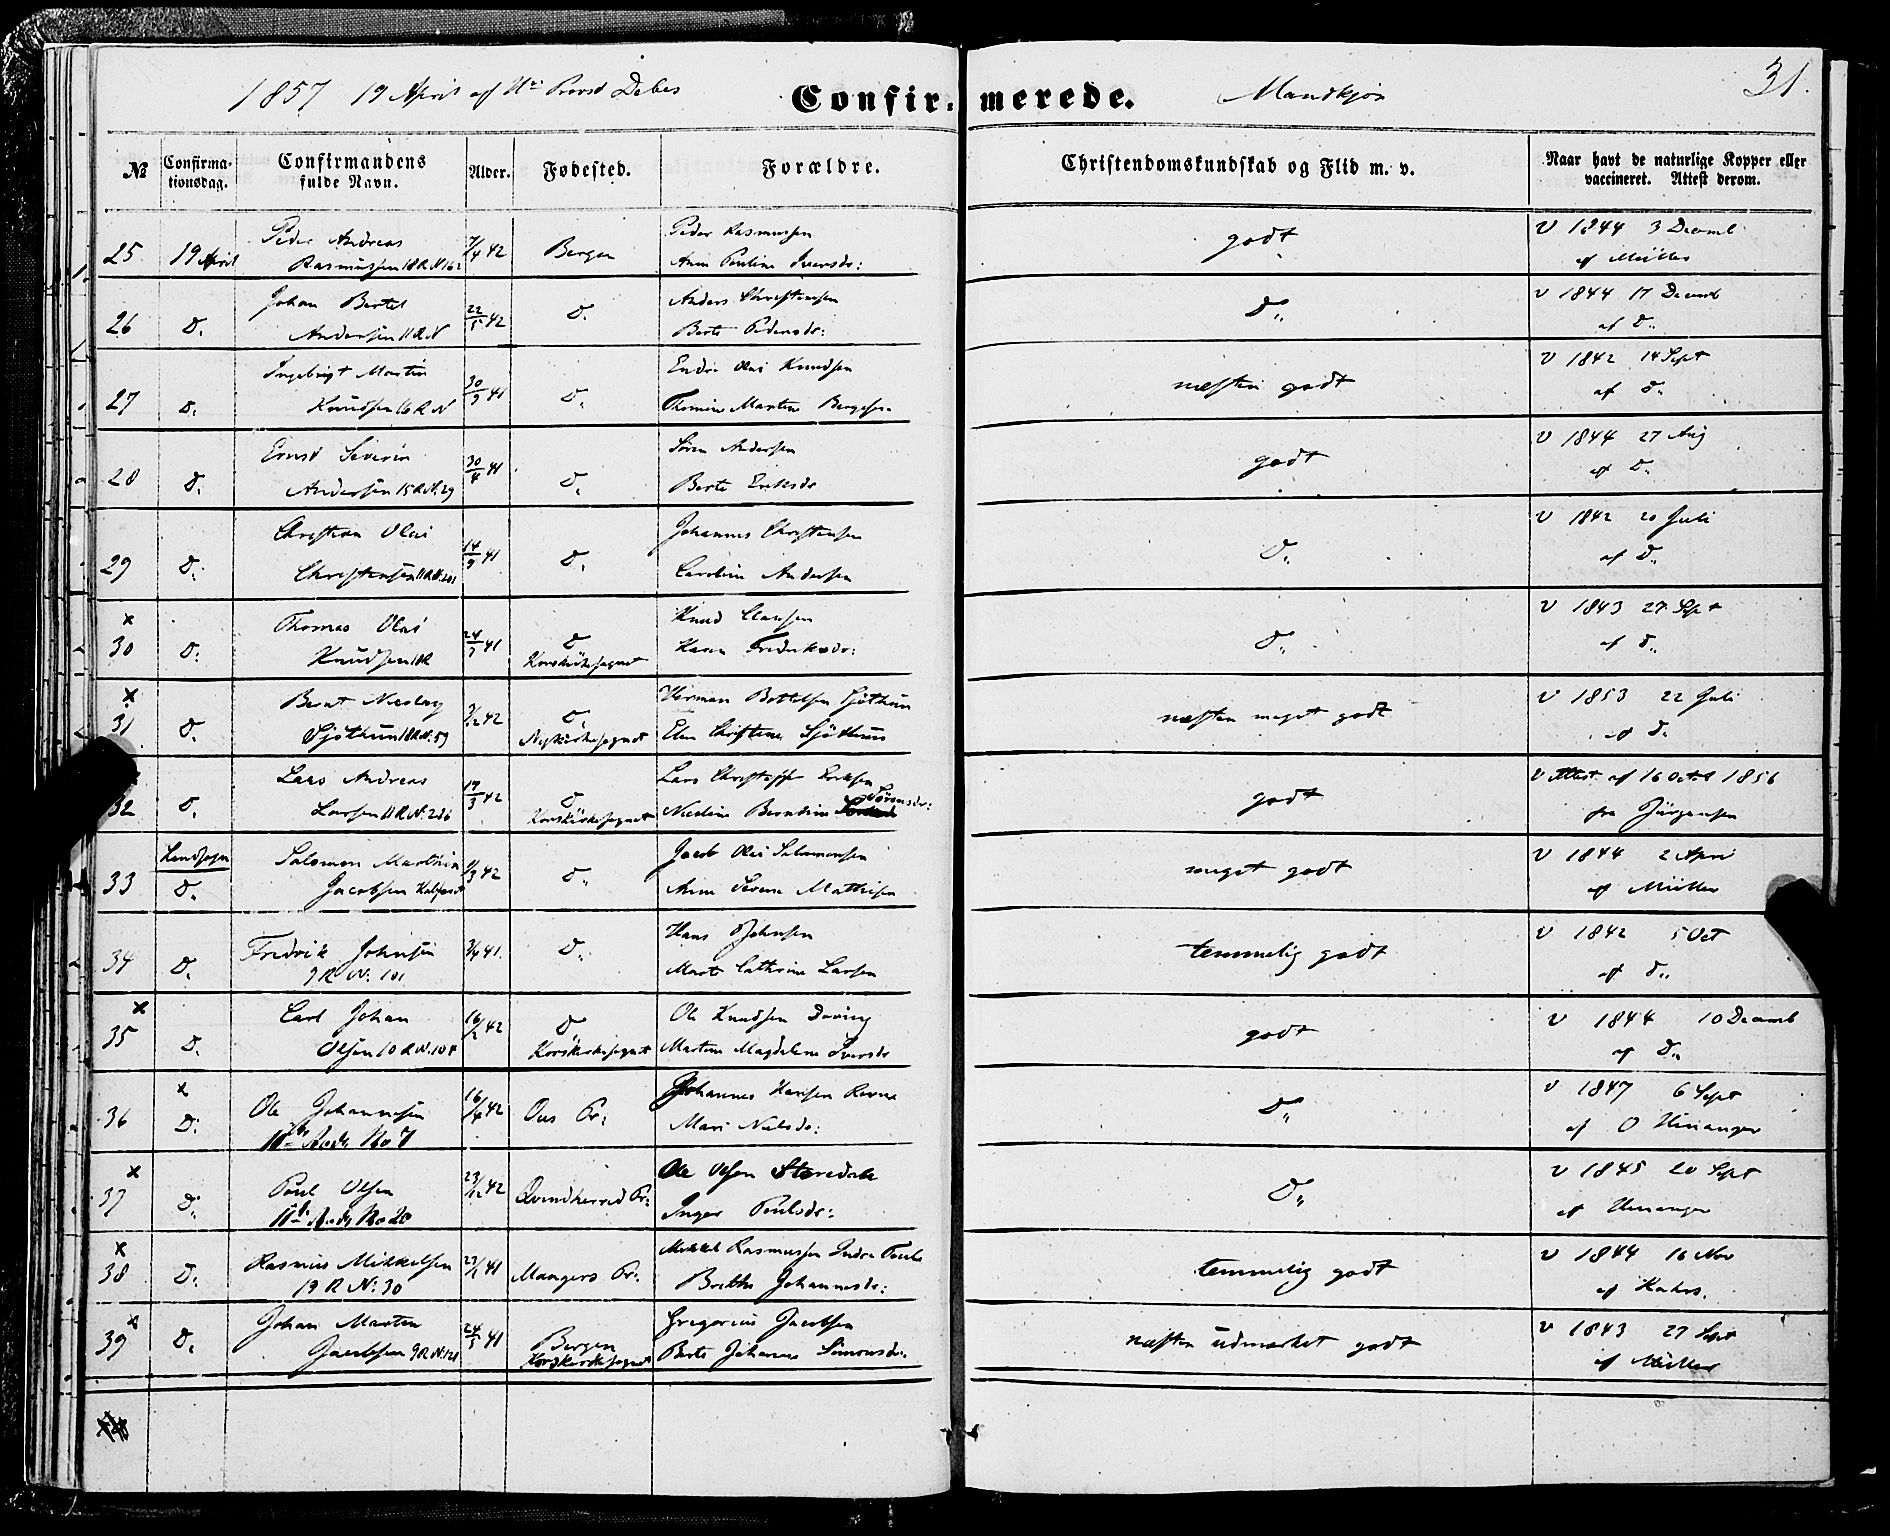 1857 19 April af Hr Provst Debes
Confirmerede.
Mandkjøn
31.
№
Confirmationsdag.
Confirmandens fulde Navn.
Alder.
Fødested.
Forældre.
Christendomskundskab og Flid m. v.
Naar havt de naturlige Kopper eller vaccineret. Attest derom.
25 19 April Peder Andreas Rasmussen 18 R N 162 7/4 42 Bergen Peder Rasmussen godt V 1844 3 Decemb
Anne Pauline Iversdr: af Müller
26 D. Johan Bertel Andersen 11 R N 22/5 42 D. Anders Christensen D.. V 1844 17 Decemb
Berte Pedersdr: af D..
27 D. Ingebrigt Martin Knudsen 16 R N 30/9 41 D. Endre Olai Knudsen næsten godt V 1842 14 Sept
Thomine Martine af D.
28 D. Ernst Severin Andersen 15 R N. 29 30/4 41 D. Søren Andersen godt V 1844 27 Aug
Berte Eriksdr af D.
29 D. Christian Olai Christensen 11 R N. 201 14/9 41 D. Johannes Christensen D.. V 1842 20 Juli
Caroline Andersen af D..
x
30 D. Thomas Olai Knudsen 11 R 24/7 41 D Knud Clausen D.. V 1843 27 Sept
Korskirkesognet Karen Frederiksdr: af D..
x
31 D. Bernt Nicolay Sjöthun 11 R N. 59 42 D Herman Bottelsen Sjöthun næsten meget godt V 1853 22 Juli
Nykirkesognet Elen Christine Sjöthun af D.
32 D. Lars Andreas Larsen 11 R N. 226 19/3 42 D Lars Christopher Eriksen godt V Attest af 16 Oct 1856
Korskirkesognet Nicoline Berntine Sørensdr: fra Jürgensen
Landsogn
33 D. Salomon Marthin Jacobsen Kalfaret 42 D.. Jacob Olai Salomonsen meget godt V 1844 2 April
Anne Severine Mathisen af Müller
34 D. Fredrik Johnsen 3/9 41. D. Hans Johnsen temmelig godt V 1842 5 Oct
9 R N. 101 Marte Cathrine Larsen af D..
x
35 D. Carl Johan Olsen 10 R N. 108 16/2 42 D Ole Knudsen godt V 1844 10 Decemb
Korskirkesognet Martine Magdalene Iversdr af D.
x
36 D: Ole Johannessen 16/4 42 Ous Pr: Johannes Hansen D.. V 1847 6 Sept
11te Rode No 7 Mari Nielsdr: af O
x
37 D. Poul Olsen 23/12 42 Qvindherred Pr: Ole Olsen D.. V 1845 20 Sept
11te Rode No 20 Inger Poulsdr: af
x
38 D. Rasmus Mikkelsen 23/1 41 Mangers Pr: Mikkel Rasmussen temmelig godt V 1844 16 Nov
19 R N: 30 Brithe Johannesdr: af
x
39 D. Johan Martin Jacobsen 9 R N. 121 24/5 41 Bergen Gregorius Jacobsen næsten udmærket godt V 1843 27 Sept
Korskirkesognet Berte Johanne Simonsdr. af Müller